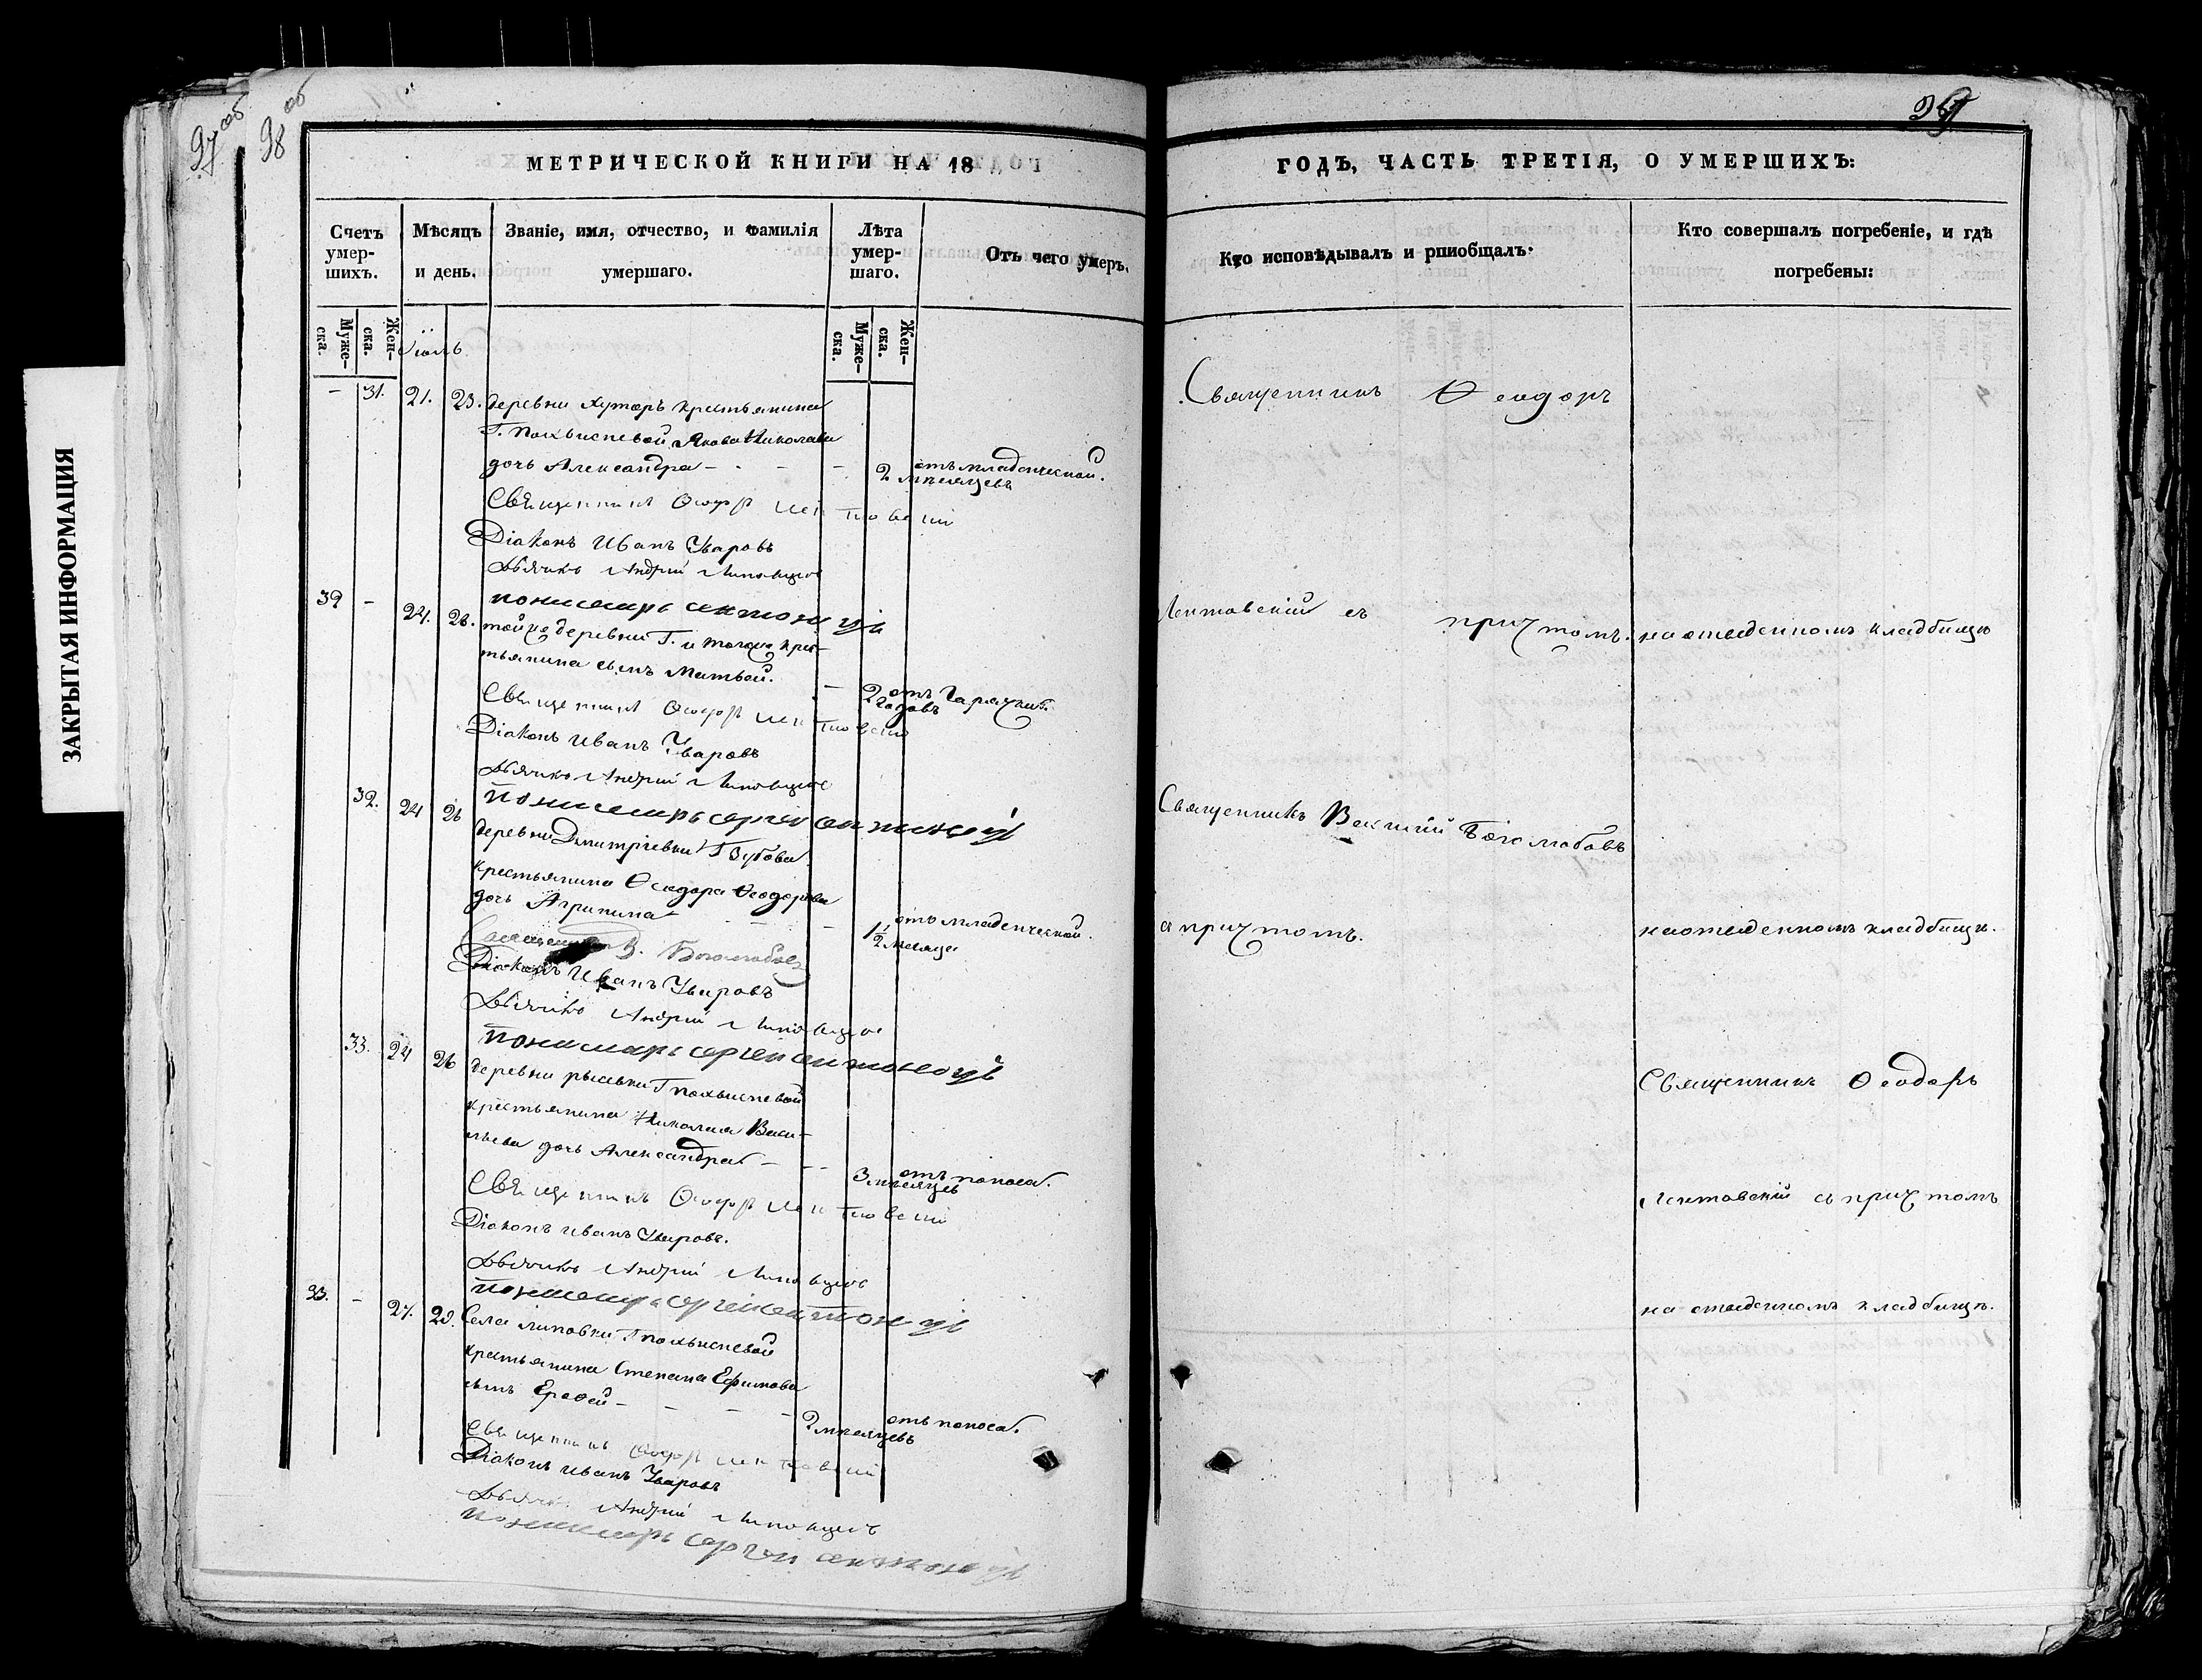 97 об
98 об
ЗАКРЫТАЯ ИНФОРМАЦИЯ
МЕТРИЧЕСКОЙ КНИГИ НА 18
Счетъ умер-шихъ.
Мѣсяцъ и день.
Званіе, имя, отчество, и фамилія умершаго.
Лѣта умер-шаго.
Отъ чего умеръ.
Муже-ска.
Жен-ска.
Іюль
Муже-ска.
Жен-ска.
- 31. 21. 23. деревни Хуторъ крестьянина
Г. Похвисневой Якова Николаева
дочь Александра - - - - 2 мѣсяцевъ отъ младенческой.
Священникъ Феодоръ Лентовскій
Діаконъ Иванъ Уваровъ
Дьячикъ Андрей Липовцевъ
пономарь
39 - 24. 26. той же деревни Г. и тогоже крес-
тьянина сынъ Матвей. - 2 годовъ отъ Гарячки.
Священникъ Феодоръ Лентовскій
Діаконъ Иванъ Уваровъ
Дьячикъ Андрей Липовцевъ
пономарь сергей
32. 24 26 деревни Дмитріевки Г Зубова
крестьянина Феодора Феодорова
дочь Агрипина - - - 1 1/2 месяца отъ младенческой.
Священникъ В. Боголюбовъ
Діаконъ Иванъ Уваровъ
Дьячикъ Андрей Липовцевъ
пономарь сергей
33. 24 26 деревни рысевки Г похвисневой
крестьянина Николая Васи-
льева дочь Александра - - - 3 мѣсяцев отъ поноса.
Священникъ Феодоръ Лентовскій
Діаконъ Иванъ Уваровъ.
Дьячикъ Андрей Липовцевъ
пономарь сергей
33. - 27. 29. Села липовки Г похвисневой
крестьянина Степана Ефимова
сынъ Ерофей - - - - 2 мѣсяцевъ отъ поноса.
Священникъ Феодоръ Лентовскій
Діаконъ Иванъ Уваровъ
Дьячикъ Андрей Липовцевъ
пономарь сергей
ГОДЪ, ЧАСТЬ ТРЕТІЯ, О УМЕРШИХЪ:
Кто исповѣдывалъ и рпиобщалъ:
Кто совершалъ погребеніе, и гдѣ погребены:
Священникъ Феодоръ
Лентовскій съ причтомъ. на отведенномъ кладбищѣ
Священникъ Василій Боголюбовъ
с причтомъ. на отведенномъ кладбищѣ.
Священникъ Феодоръ
Лентовскій съ причтомъ
на отведенномъ кладбищѣ.